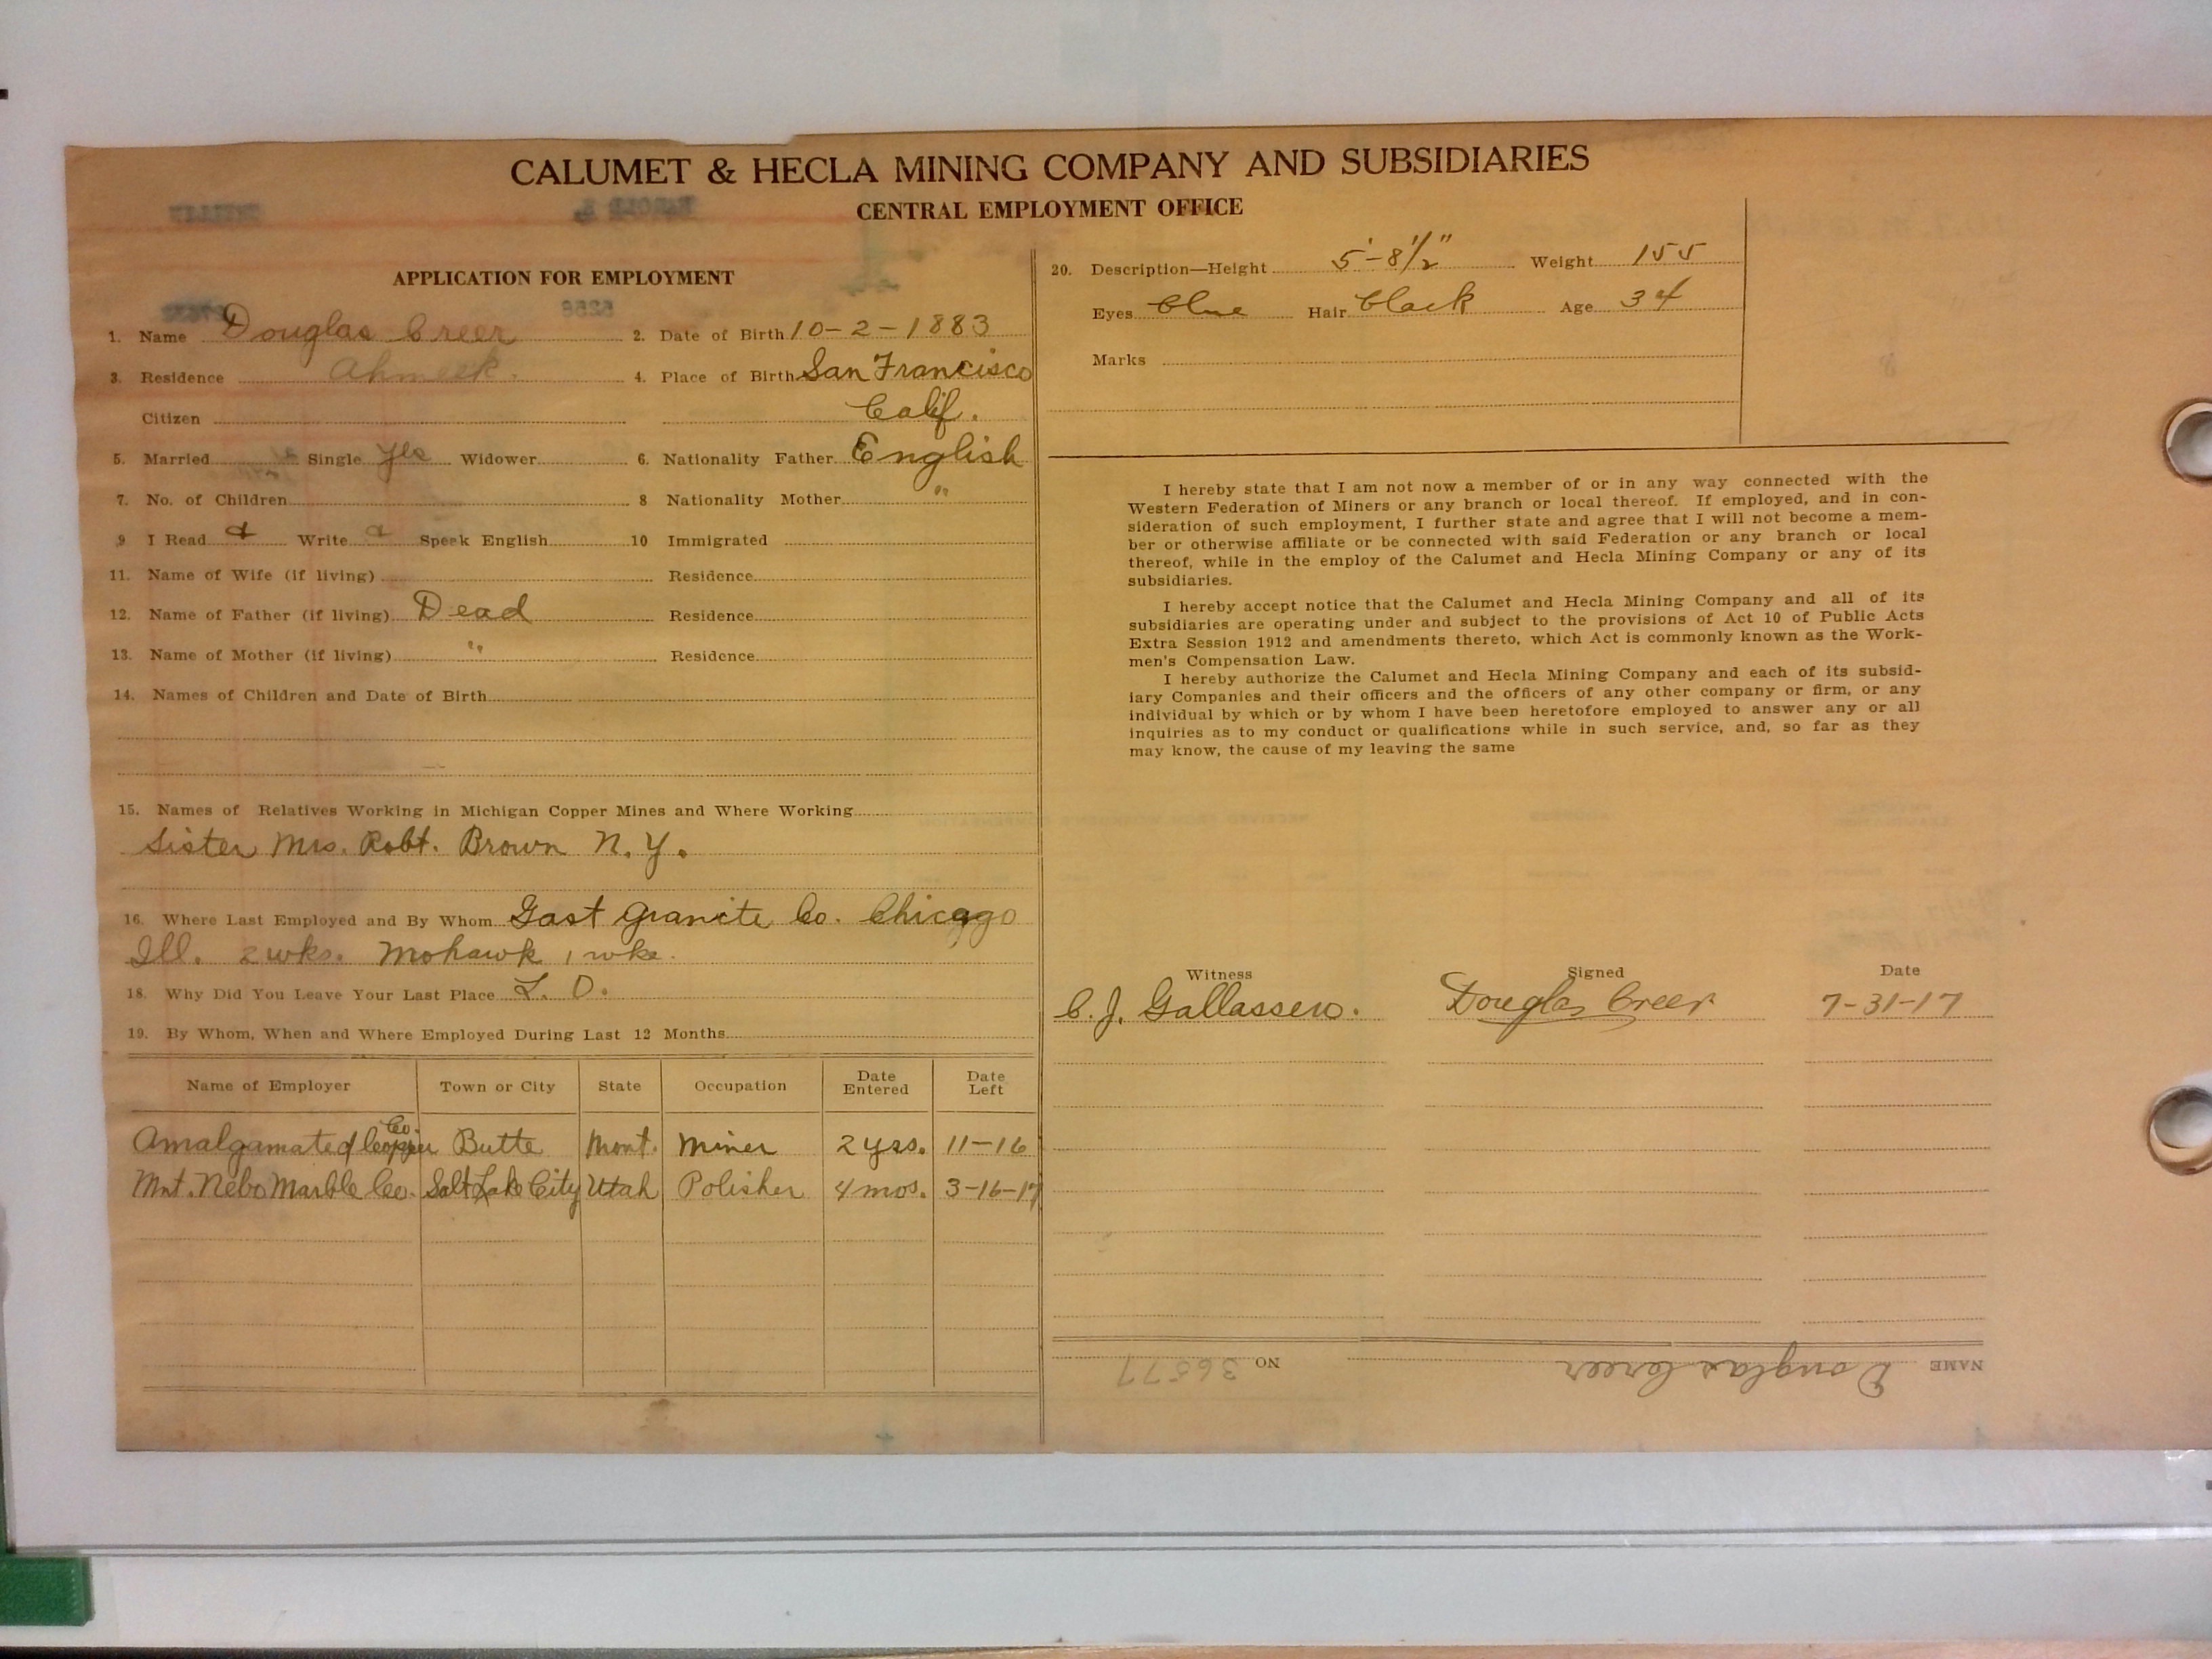 CALUMET & HECLA MINING COMPANY AND SUBSIDIARIES
CENTRAL EMPLOYMENT OFFICE
APPLICATION FOR EMPLOYMENT
1. Name Douglas Creer 2. Date of Birth 10-2-1883
3. Residence Ahmeek. 4. Place of Birth San Francisco
Citizen Calif.
5. Married Single Yes Widower 6. Nationality Father English
7. No. of Children 8 Nationality Mother "
9 I Read Write Speek English 10 Immigrated
11. Name of Wife (if living) Residence
12. Name of Father (if living) Dead Residence
13. Name of Mother (if living) " Residence
14. Names of Children and Date of Birth
15. Names of Relatives Working in Michigan Copper Mines and Where Working
Sister Mrs. Robt. Brown N.Y.
16. Where Last Employed and By Whom Gast Granite Co. Chicago
Ill. 2 wks. Mohawk 1 wke.
18. Why Did You Leave Your Last Place L. O.
19. By Whom, When and Where Employed During Last 12 Months
Name of Employer Town or City State Occupation Date Entered Date Left
Amalgamated Copper Co. Butte Mont. Miner 2 yrs. 11-16
Mnt. Nebo Marble Co. Salt Lake City Utah Polisher 4 mos. 3-16-17
20. Description—Height 5'-8 1/2" Weight 155
Eyes blue Hair black Age 34
Marks
I hereby state that I am not now a member of or in any way connected with the
Western Federation of Miners or any branch or local thereof. If employed, and in con-
sideration of such employment, I further state and agree that I will not become a mem-
ber or otherwise affiliate or be connected with said Federation or any branch or local
thereof, while in the employ of the Calumet and Hecla Mining Company or any of its
subsidiaries.
I hereby accept notice that the Calumet and Hecla Mining Company and all of its
subsidiaries are operating under and subject to the provisions of Act 10 of Public Acts
Extra Session 1912 and amendments thereto, which Act is commonly known as the Work-
men's Compensation Law.
I hereby authorize the Calumet and Hecla Mining Company and each of its subsid-
iary Companies and their officers and the officers of any other company or firm, or any
individual by which or by whom I have been heretofore employed to answer any or all
inquiries as to my conduct or qualifications while in such service, and, so far as they
may know, the cause of my leaving the same
Witness Signed Date
C. J. Gallassero. Douglas Creer 7-31-17
NAME Douglas Creer NO 36577